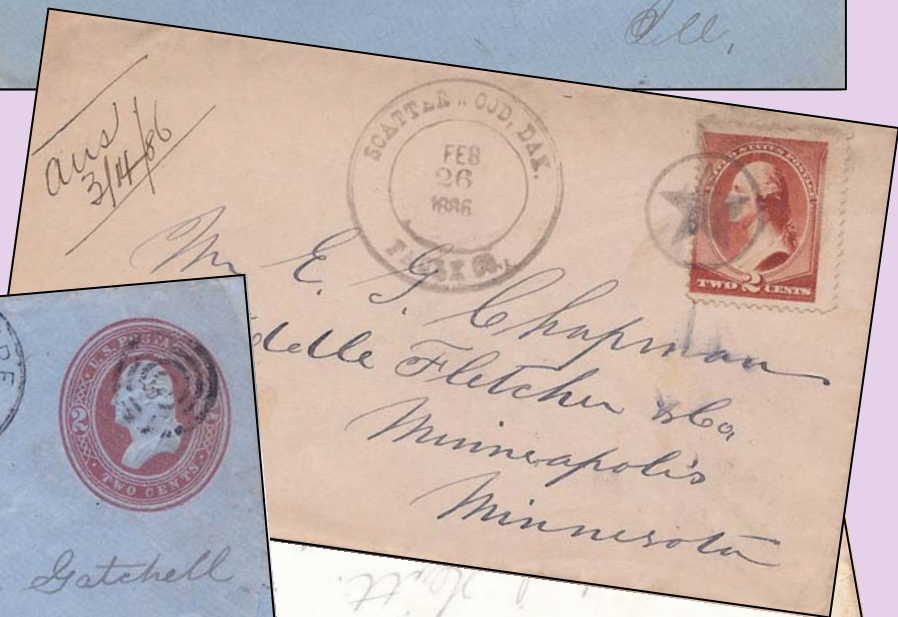 Ill,
ans
3/14/86
SCATTERWOOD, DAK.
FEB
26
1886
FAULK CO.,
UNITED STATES POSTAGE
TWO 2 CENTS
Mr E. G. Chapman
Fletcher & Co
Minneapolis
Minnesota
U.S. POSTAGE
2 2
TWO CENTS
Gatchell